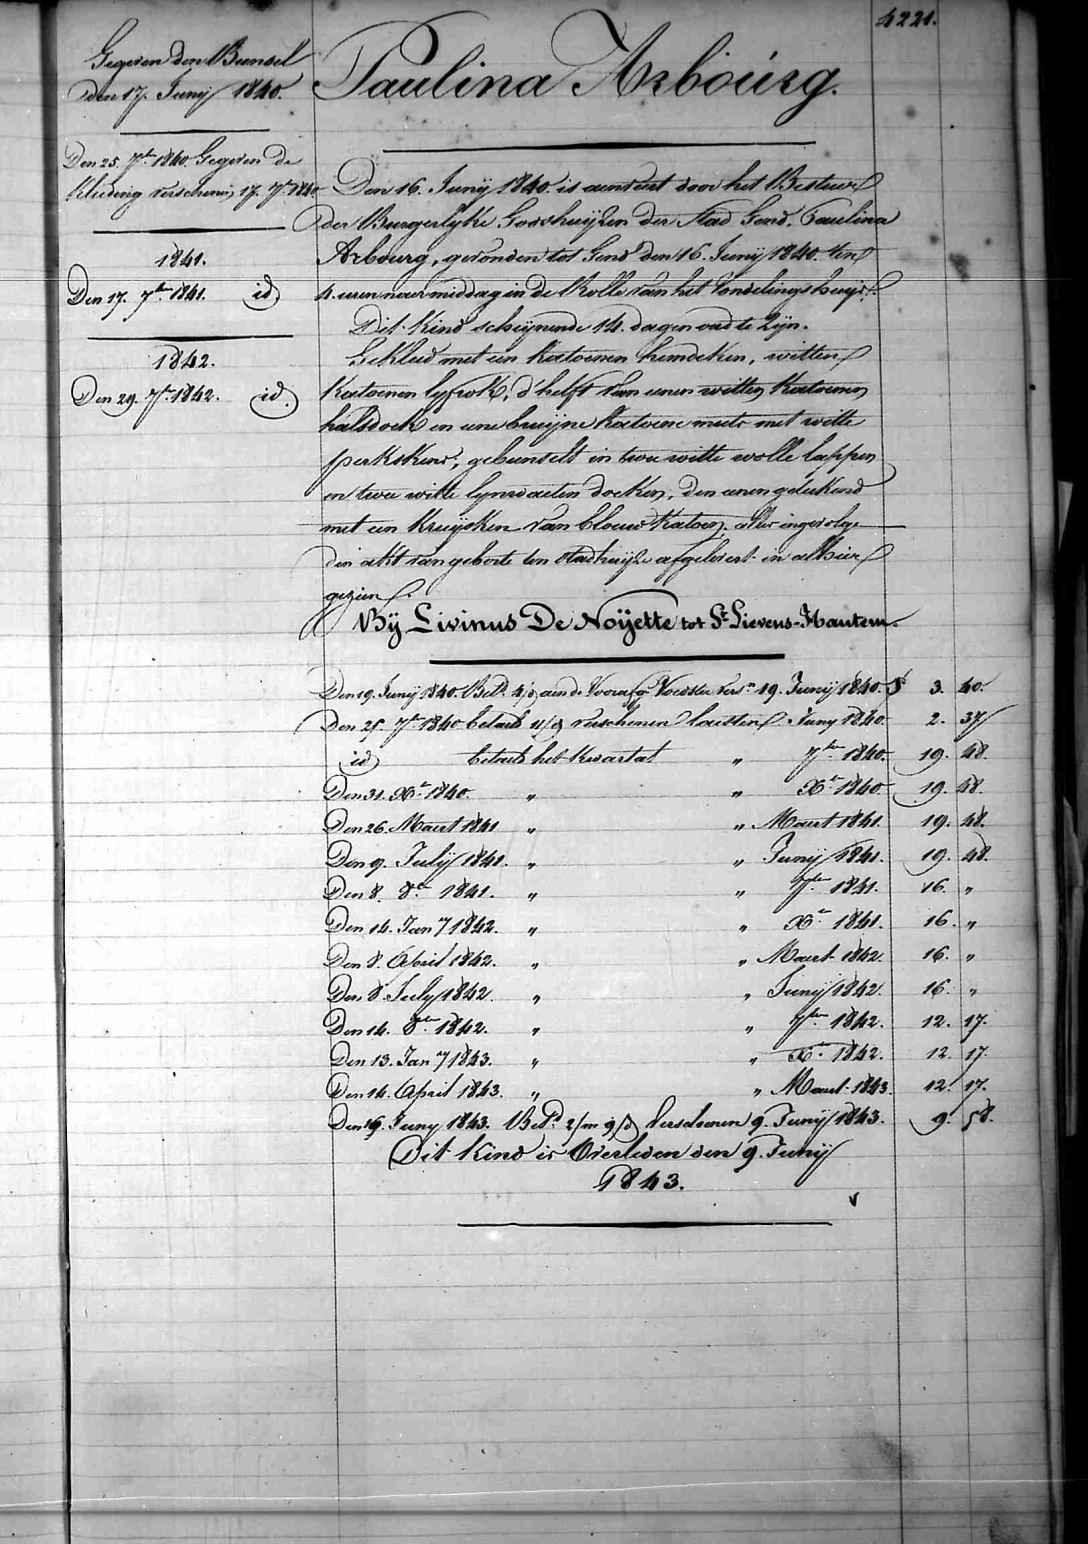 4221.
Gegeven den Bunsel
den 17. Junij 1840.
Den 25. 7br 1840. Gegeven de
Kleeding verschenen 17. 7br 1840
1841.
Den 17. 7br 1841. id
1842.
Den 29. 7br 1842. id.
Paulina Arbourg.
Den 16. Junij 1840 is aenveert door het Bestuer
der Burgerlyke Godshuijzen der Stad Gend. Paulina
Arbourg, gevonden tot Gend den 16. Junij 1840. ten
4. uren naer middag in de Rolle van het Vondelingshuijs.
Dit kind scheijnende 14. dagen oud te zijn.
Gekleed met een katoenen hemdeken, witten
katoenen lyfrok, d'helft van eenen witten katoenen
halsdoek en eene bruijne katoene muts met witte
perkskens, gebunselt in twee witte wolle lappen
en twee witte lynwaeten doeken, den eenen geteekend
met een kruijsken van blauw katoen, alles ingevolge
den akt van geboorte ten stadhuijze afgelevert en alhier
gezien.
Bij Livinus De Noÿette tot St Lievens-Hautem.
Den 19. Junij 1840. Betd 4/d aen de Voorafg Voedster vers 19. Junij 1840. f 3. 40.
Den 25. 7br 1840 betaelt 11/d verschenen laetsten Juny 1840. 2. 37
id betaelt het kwartael " 7ber 1840. 19. 48.
Den 31. Xbr 1840. " " Xbr 1840. 19. 48.
Den 26. Maert 1841 " " Maert 1841. 19. 48.
Den 9. Julij 1841. " " Junij 1841. 19. 48.
Den 8. 8br 1841. " " 7ber 1841. 16. "
Den 14. Jan 7 1842. " " Xbr 1841. 16. "
Den 8. April 1842. " " Maert 1842. 16. "
Den 8. July 1842. " " Junij 1842. 16. "
Den 14. 8ber 1842. " " 7ber 1842. 12. 17.
Den 13. Jan 7 1843. " " Xbr 1842. 12. 17.
Den 14. April 1843. " " Maert 1843. 12. 17.
Den 19. Juny 1843. Betd 2/m 9/d Verschenen 9. Junij 1843. 9. 58.
Dit kind is Overleden den 9. Junij
1843.